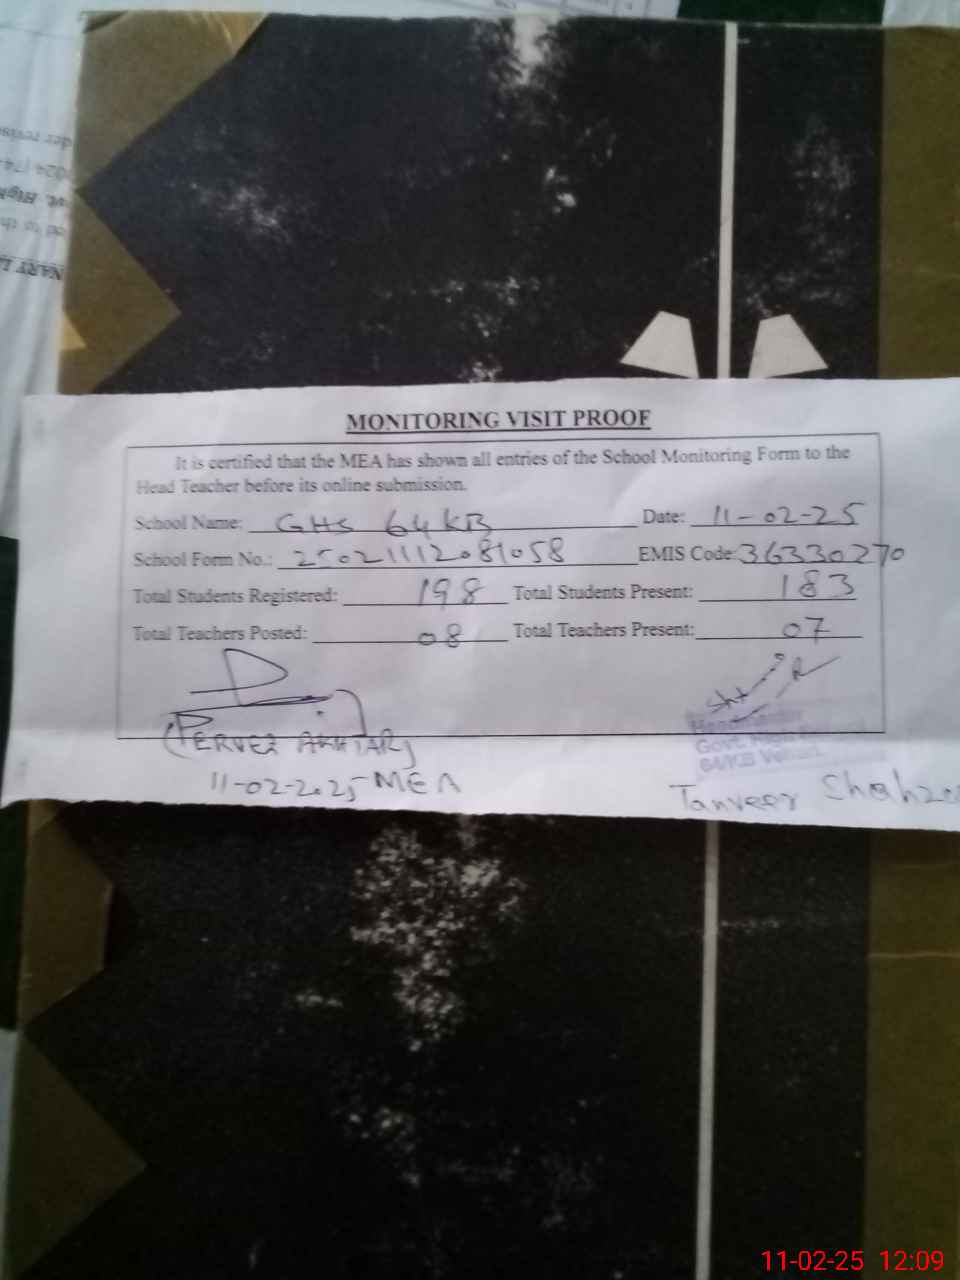 MONITORING VISIT PROOF
It is certified that the MEA has shown all entries of the School Monitoring Form to the
Head Teacher before its online submission.
School Name: GHS 64 KB Date: 11-02-25
School Form No.: 25021112081058 EMIS Code: 36330270
Total Students Registered: 198 Total Students Present: 183
Total Teachers Posted: 08 Total Teachers Present: 07
Govt. High
64/KB
(PERVEZ AKHTAR)
11-02-2025 MEA
Tanveer
11-02-25 12:09